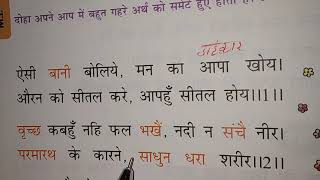 दोहा अपने आप में बहुत गहरे अर्थ को समेटे हुए होता है
अहंकार
ऐसी बानी बोलिये, मन का आपा खोय।
औरन को सीतल करे, आपहुँ सीतल होय।।1।।
वृच्छ कबहुँ नहि फल भखैं, नदी न संचै नीर।
परमारथ के कारने, साधुन धरा शरीर।।2।।